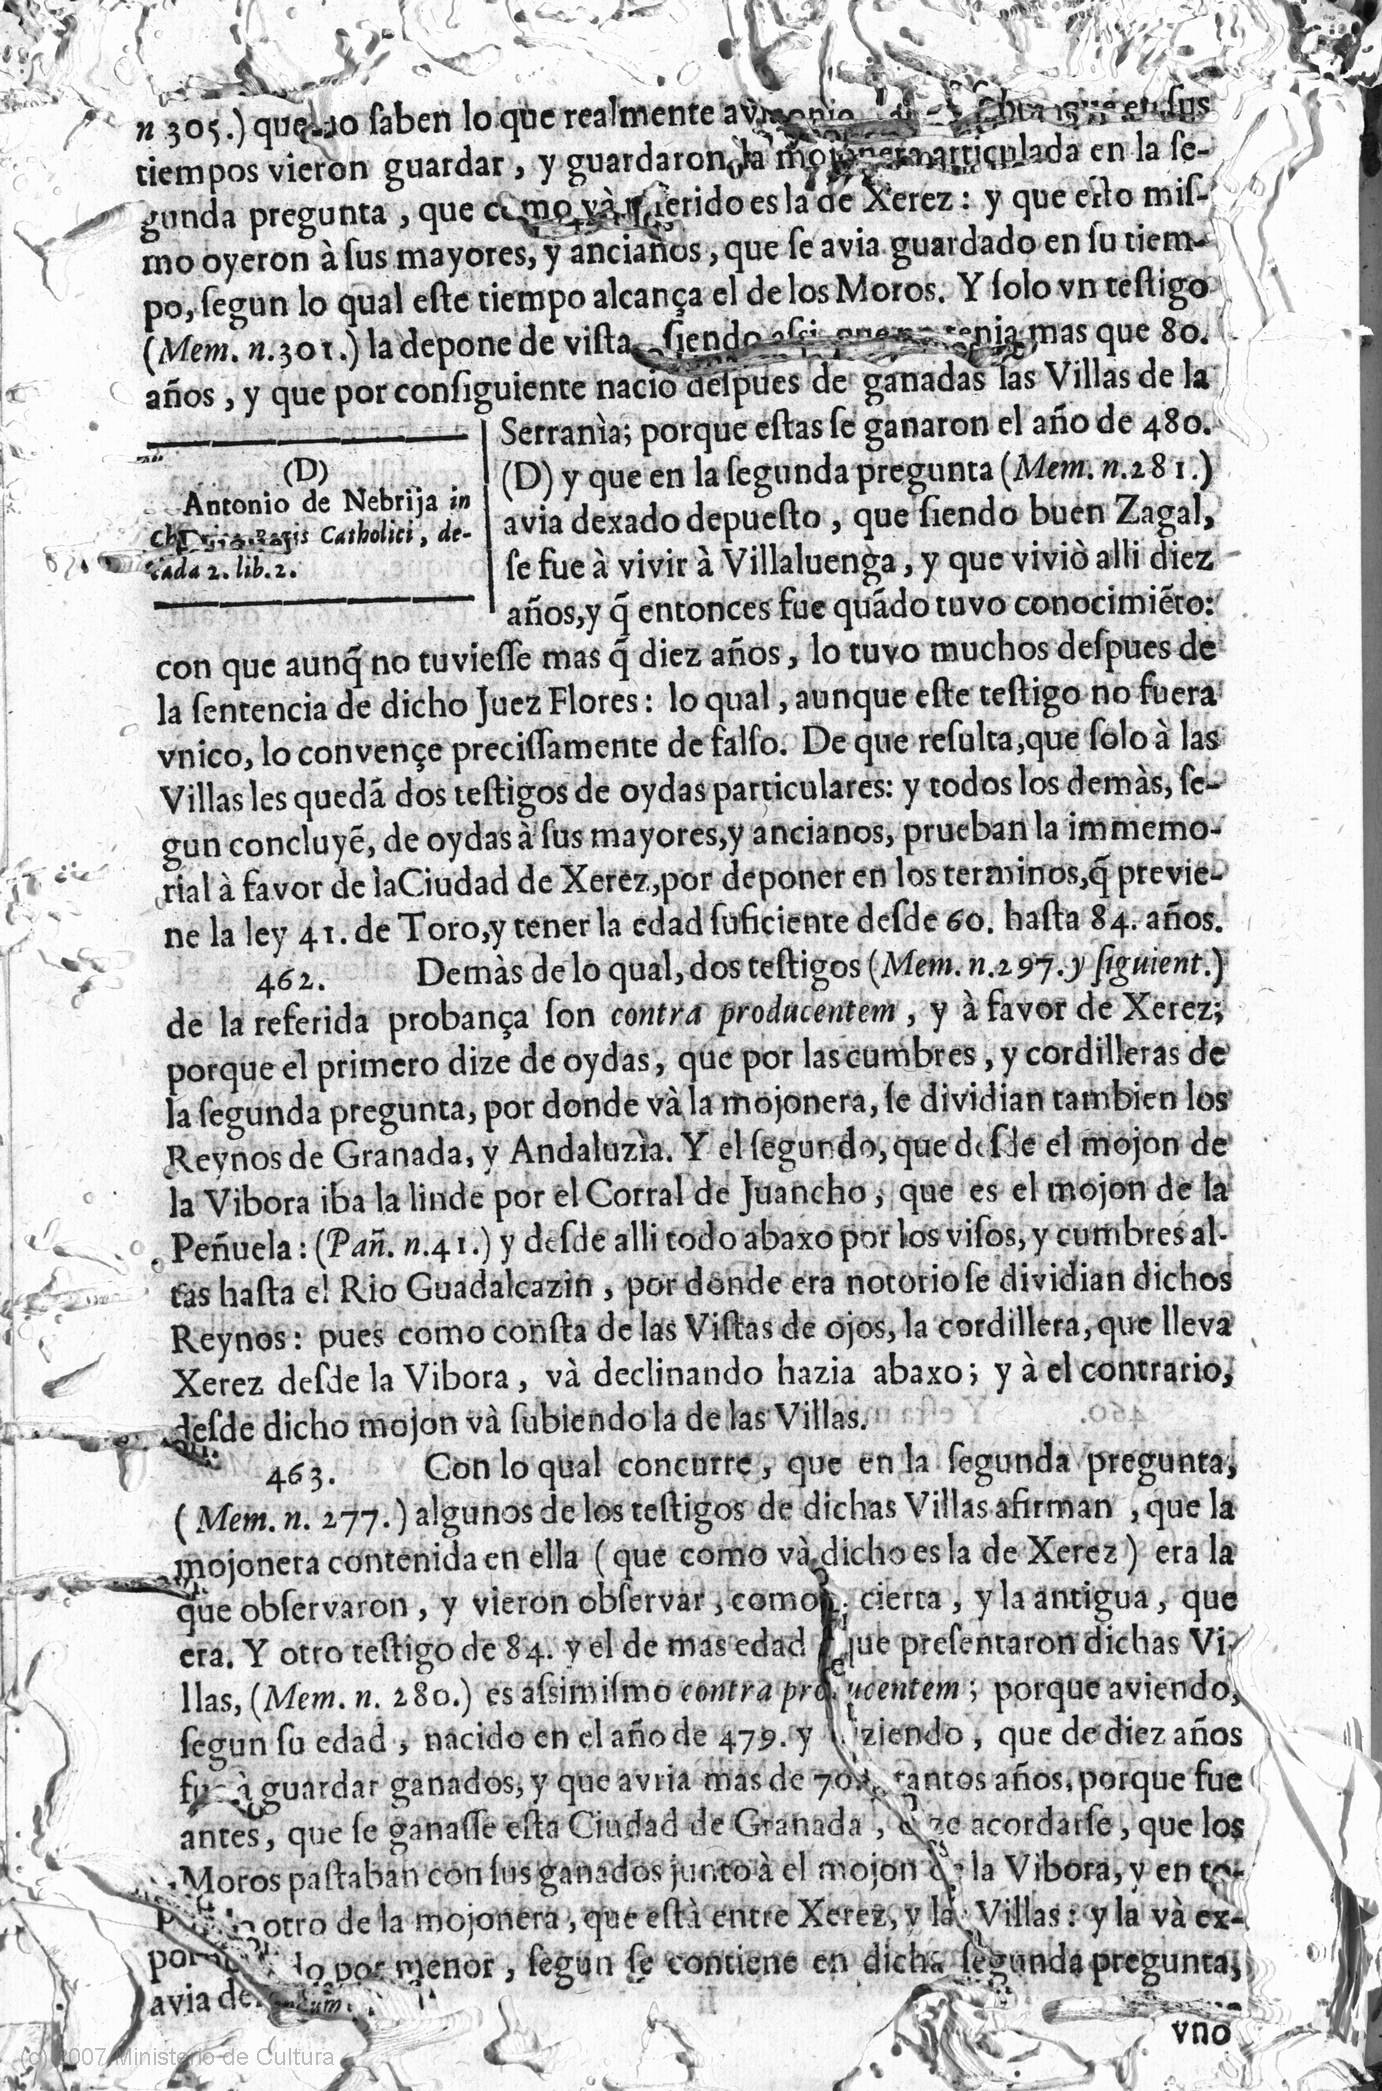 n 305.) que no ſaben lo que realmente ſus
tiempos vieron guardar, y guardaron la mojonera articulada en la ſe-
gunda pregunta, que como và referido es la de Xerez: y que eſto miſ-
mo oyeron à ſus mayores, y ancianos, que ſe avia guardado en ſu tiem-
po, ſegun lo qual eſte tiempo alcança el de los Moros. Y ſolo vn teſtigo
(Mem. n.301.) la depone de viſta, ſiendo aſsi, que no tenia mas que 80.
años, y que por conſiguiente nacio deſpues de ganadas las Villas de la
Serranìa; porque eſtas ſe ganaron el año de 480.
(D) y que en la ſegunda pregunta (Mem. n.281.)
avia dexado depueſto, que ſiendo buen Zagal,
ſe fue à vivir à Villaluenga, y que viviò alli diez
años, y q̃ entonces fue quãdo tuvo conocimiẽto:
(D)
Antonio de Nebrija in
Regis Catholici, de-
cada 2. lib. 2.
con que aunq̃ no tuvieſſe mas q̃ diez años, lo tuvo muchos deſpues de
la ſentencia de dicho Juez Flores: lo qual, aunque eſte teſtigo no fuera
vnico, lo convençe preciſſamente de falſo. De que reſulta, que ſolo à las
Villas les quedã dos teſtigos de oydas particulares: y todos los demàs, ſe-
gun concluyẽ, de oydas à ſus mayores, y ancianos, prueban la immemo-
rial à favor de la Ciudad de Xerez, por deponer en los terminos, q̃ previe-
ne la ley 41. de Toro, y tener la edad ſuficiente deſde 60. haſta 84. años.
462. Demàs de lo qual, dos teſtigos (Mem. n.297. y ſiguient.)
de la referida probança ſon contra producentem, y à favor de Xerez;
porque el primero dize de oydas, que por las cumbres, y cordilleras de
la ſegunda pregunta, por donde và la mojonera, ſe dividian tambien los
Reynos de Granada, y Andaluzìa. Y el ſegundo, que deſde el mojon de
la Vibora iba la linde por el Corral de Juancho, que es el mojon de la
Peñuela: (Pañ. n.41.) y deſde alli todo abaxo por los viſos, y cumbres al-
tas haſta el Rio Guadalcazin, por donde era notorio ſe dividian dichos
Reynos: pues como conſta de las Viſtas de ojos, la cordillera, que lleva
Xerez deſde la Vibora, và declinando hazia abaxo; y à el contrario,
deſde dicho mojon và ſubiendo la de las Villas.
463. Con lo qual concurre, que en la ſegunda pregunta,
(Mem. n. 277.) algunos de los teſtigos de dichas Villas afirman, que la
mojonera contenida en ella (que como và dicho es la de Xerez) era la
que obſervaron, y vieron obſervar, como cierta, y la antigua, que
era. Y otro teſtigo de 84. y el de mas edad que preſentaron dichas Vi-
llas, (Mem. n. 280.) es aſsimiſmo contra producentem; porque aviendo,
ſegun ſu edad, nacido en el año de 479. y diziendo, que de diez años
fue à guardar ganados, y que avria mas de 70. tantos años, porque fue
antes, que ſe ganaſſe eſta Ciudad de Granada, dize acordarſe, que los
Moros paſtaban con ſus ganados junto à el mojon de la Vibora, y en to-
otro de la mojonera, que eſtà entre Xerez, y las Villas: y la và ex-
por menor, ſegun ſe contiene en dicha ſegunda pregunta,
avia
vno
(c) 2007 Ministerio de Cultura